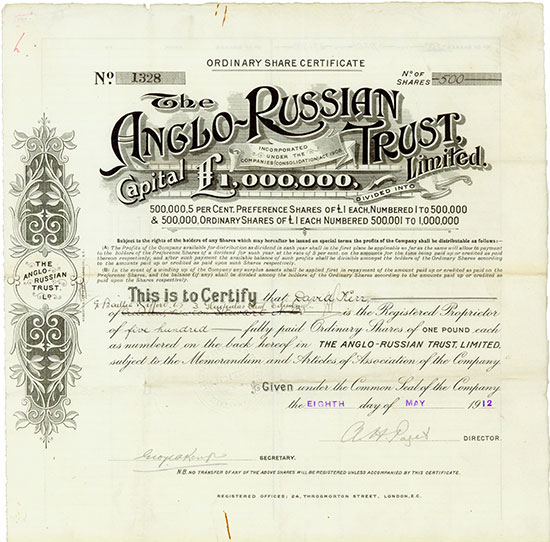 ORDINARY SHARE CERTIFICATE
No. 1328
No. OF SHARES 500
The
ANGLO-RUSSIAN
TRUST,
Limited.
INCORPORATED
UNDER THE
COMPANIES (CONSOLIDATION) ACT 1908
Capital £1,000,000,
DIVIDED INTO
500,000.5 PER CENT. PREFERENCE SHARES OF £1 EACH, NUMBERED 1 TO 500,000
& 500,000 ORDINARY SHARES OF £1 EACH NUMBERED 500,001 TO 1,000,000
Subject to the rights of the holders of any Shares which may hereafter be issued on special terms the profits of the Company shall be distributable as follows:—
(A) The Profits of the Company available for distribution as dividend in each year shall in the first place be applicable so far as the same will allow to payment to the holders of the Preference Shares of a dividend for such year at the rate of 5 per cent. on the amounts for the time being paid up or credited as paid thereon respectively, and after such payment the available balance of such profits shall be divisible amongst the holders of the Ordinary Shares according to the amounts paid up or credited as paid upon such Shares respectively.
(B) In the event of a winding up of the Company any surplus assets shall be applied first in repayment of the amount paid up or credited as paid on the Preference Shares, and the balance (if any) shall be divided among the holders of the Ordinary Shares according to the amounts paid up or credited as paid upon the Ordinary Shares respectively.
THE
ANGLO-
RUSSIAN
TRUST,
LD.
This is to Certify that David Kerr
of is the Registered Proprietor
of five hundred fully paid Ordinary Shares of ONE POUND each
as numbered on the back hereof in THE ANGLO-RUSSIAN TRUST, LIMITED,
subject to the Memorandum and Articles of Association of the Company
Given under the Common Seal of the Company
the EIGHTH day of MAY 1912
DIRECTOR.
SECRETARY.
N.B. NO TRANSFER OF ANY OF THE ABOVE SHARES WILL BE REGISTERED UNLESS ACCOMPANIED BY THIS CERTIFICATE.
REGISTERED OFFICES; 24, THROGMORTON STREET, LONDON, E.C.